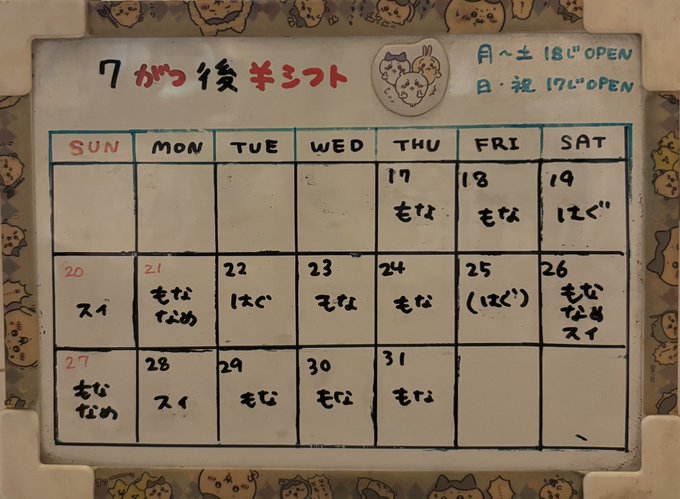 7がつ後半シフト
月～土 18じOPEN
日・祝 17じOPEN
SUN MON TUE WED THU FRI SAT
17 18 19
もな もな はぐ
20 21 22 23 24 25 26
スイ もな はぐ もな もな (はぐ) もな
なめ なめ
スイ
27 28 29 30 31
もな スイ もな もな もな
なめ